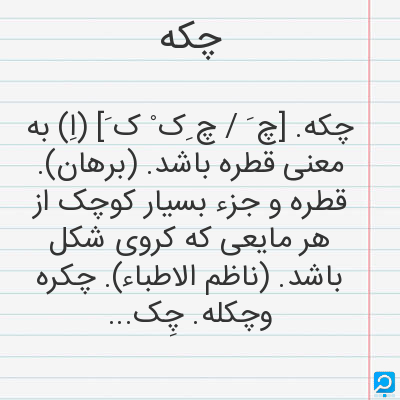 چکه
چکه. [چ َ / چ ِک ْ ک َ] (اِ) به
معنی قطره باشد. (برهان).
قطره و جزء بسیار کوچک از
هر مایعی که کروی شکل
باشد. (ناظم الاطباء). چکره
وچکله. چِک...